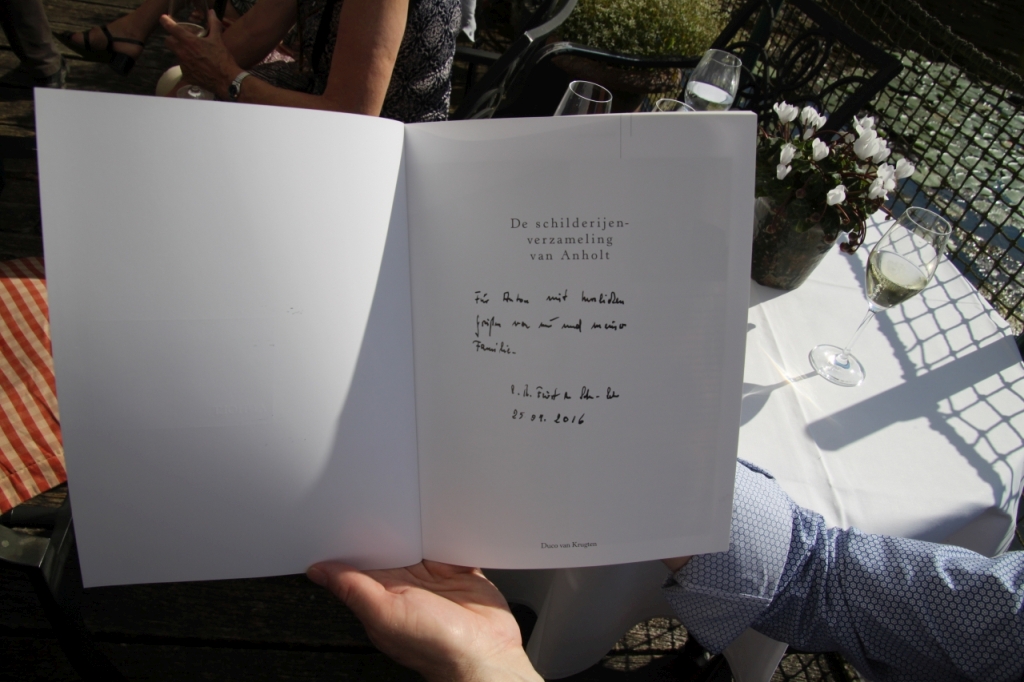 De schilderijen-
verzameling
van Anholt
Für Anton mit herzlichen
Grüßen von mir und meiner
Familie.
25.09.2016
Duco van Krugten